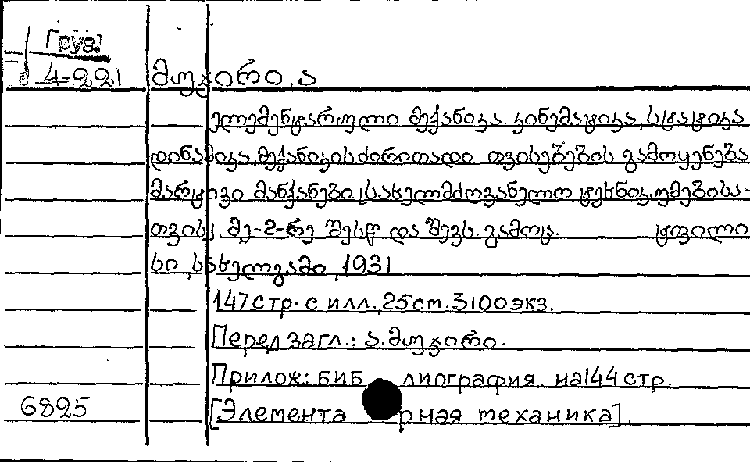 Груз.
4-221 მუჯირი, ა
ელემენტარული მექანიკა კინემატიკა, სტატიკა
დინამიკა, მექანიკის ძირითადი თვისებების გამოყენება
მარტივი მანქანები სახელმძღვანელო ტექნიკუმებისა-
თვის. მე-2-რე შესწ და შევს. გამოც. ტფილი
სი, სახელგამი, 1931
147 стр. с илл, 25 cm. 3100 экз.
Перед загл.: ა. მუჯირი.
Прилож: библиография на 144 стр.
6825 [Элементарная механика]